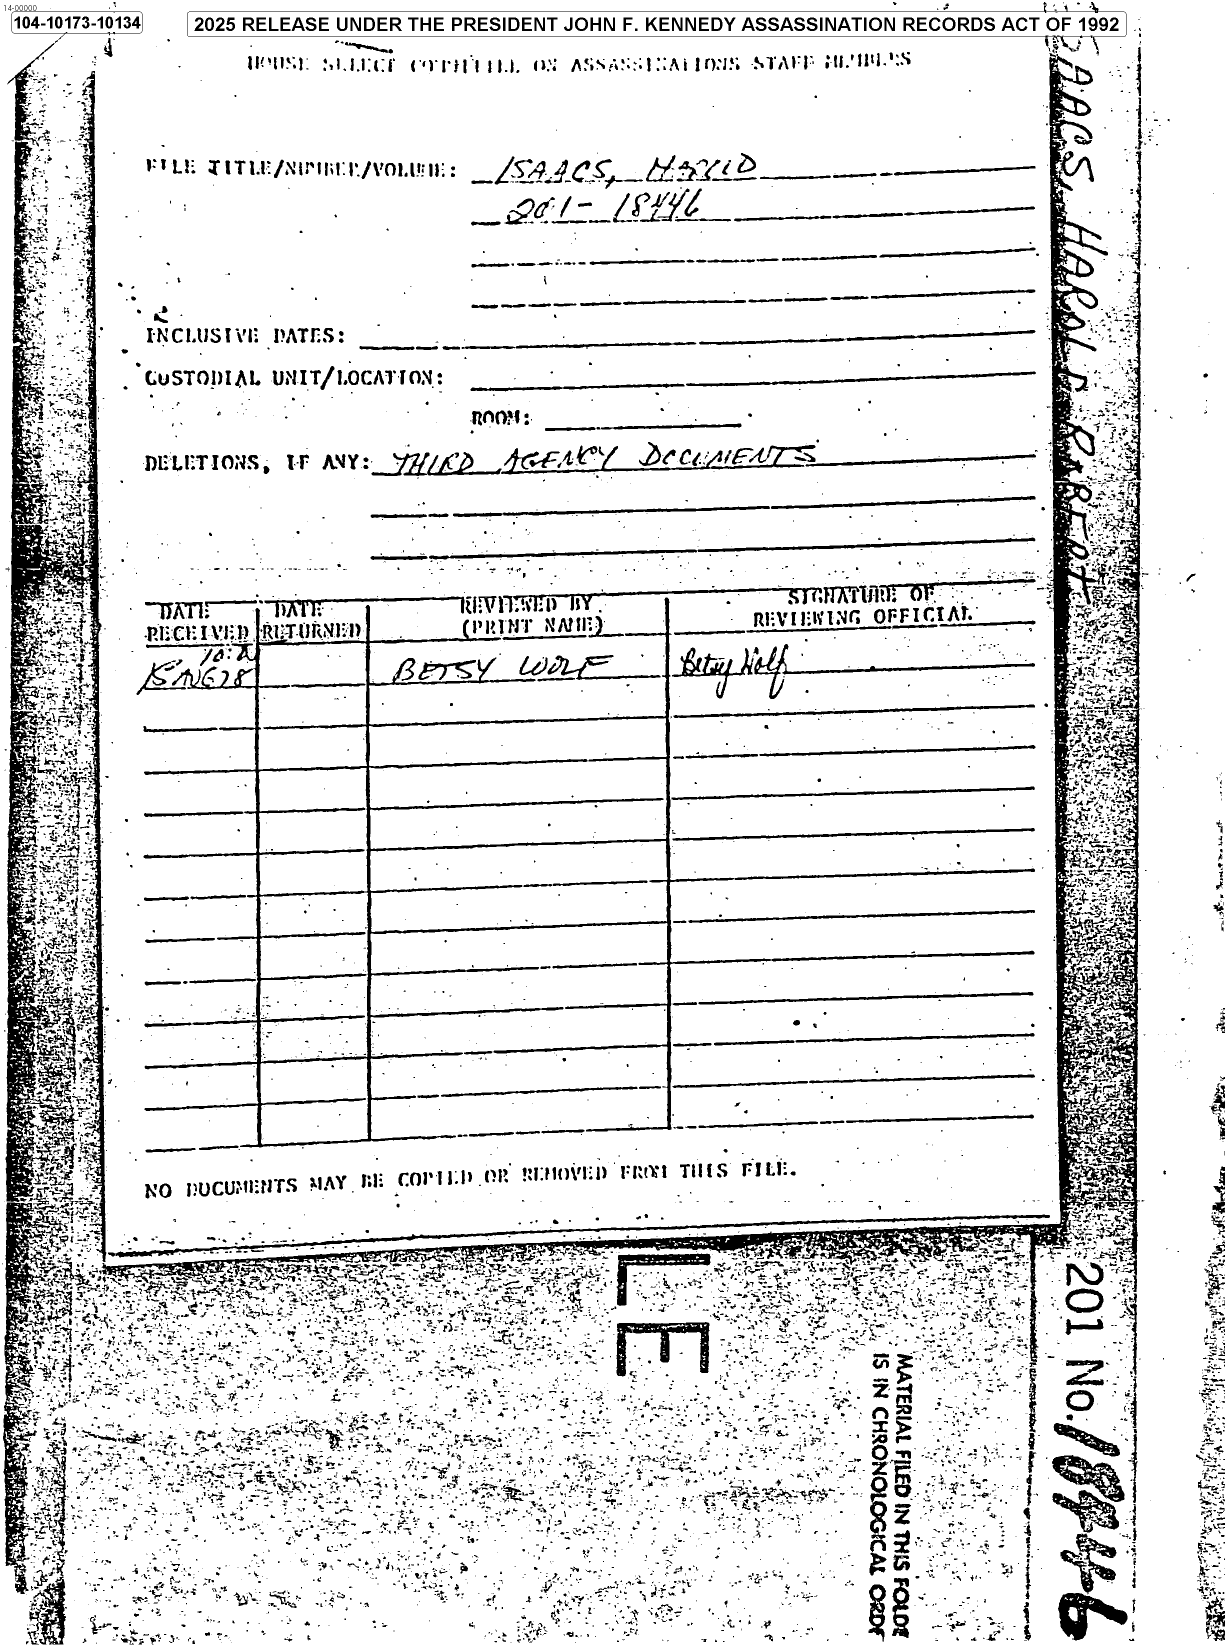 14-00000
104-10173-10134
2025 RELEASE UNDER THE PRESIDENT JOHN F. KENNEDY ASSASSINATION RECORDS ACT OF 1992
HOUSE SELECT COMMITTEE ON ASSASSINATIONS STAFF MEMBERS
FILE TITLE/NUMBER/VOLUME: ISAACS, HAROLD
201-18446
INCLUSIVE DATES:
CUSTODIAL UNIT/LOCATION:
ROOM:
DELETIONS, IF ANY: THIRD AGENCY DOCUMENTS
DATE RECEIVED
DATE RETURNED
REVIEWED BY (PRINT NAME)
SIGNATURE OF REVIEWING OFFICIAL
15 AUG 78
BETSY WOLF
Betsy Wolf
NO DOCUMENTS MAY BE COPIED OR REMOVED FROM THIS FILE.
ISAACS, HAROLD ROBERT
LE
MATERIAL FILED IN THIS FOLDE
IS IN CHRONOLOGICAL ORDE
201 No. 18446